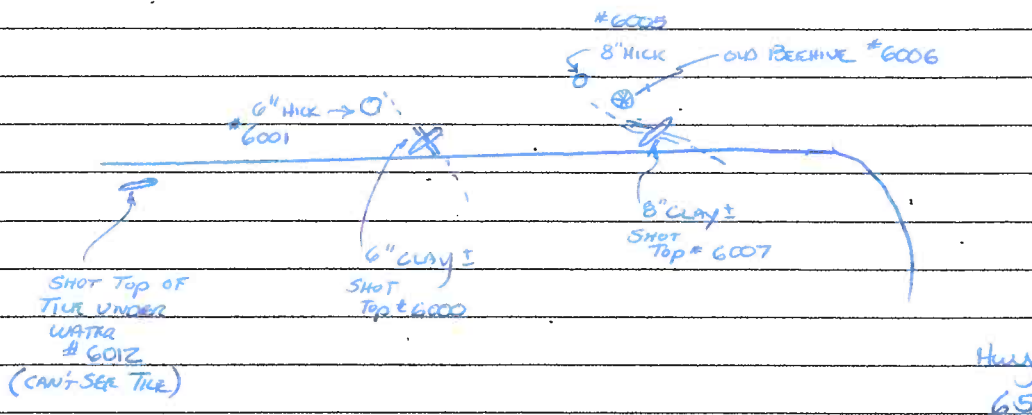 #6005
8" HICK
OLD BEEHIVE #6006
6" HICK
#6001
8" CLAY ±
SHOT
TOP # 6007
6" CLAY ±
SHOT
TOP # 6000
SHOT TOP OF
TILE UNDER
WATER
# 6012
(CAN'T SEE TILE)